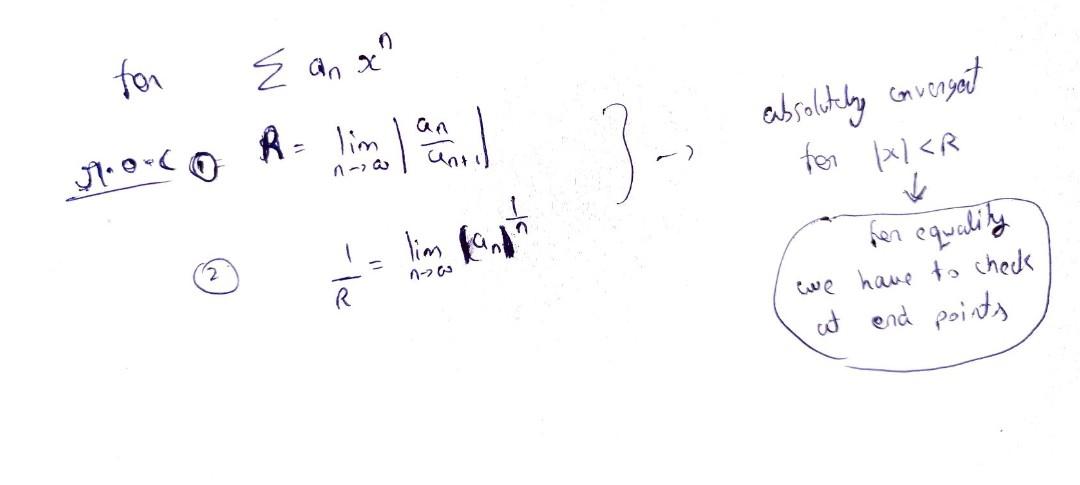 for Σ aₙ xⁿ
r.o.c ① R = lim n→∞ | aₙ / aₙ₊₁ | } →
② 1/R = lim n→∞ |aₙ|^(1/n)
absolutely convergent
for |x| < R
↓
for equality
we have to check
at end points